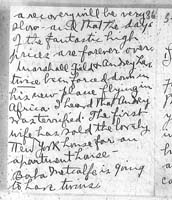 a recovery will be very 86
slow - and that the days
of the fantastic high
prices are forever over.
Marshall Field + Audrey have
twice been forced down in
his new plane flying in
Africa. I heard that Audrey
was terrified. The first
wife has sold the lovely
New York house for an
apartment house.
Boho Metcalfe is going
to have twins.